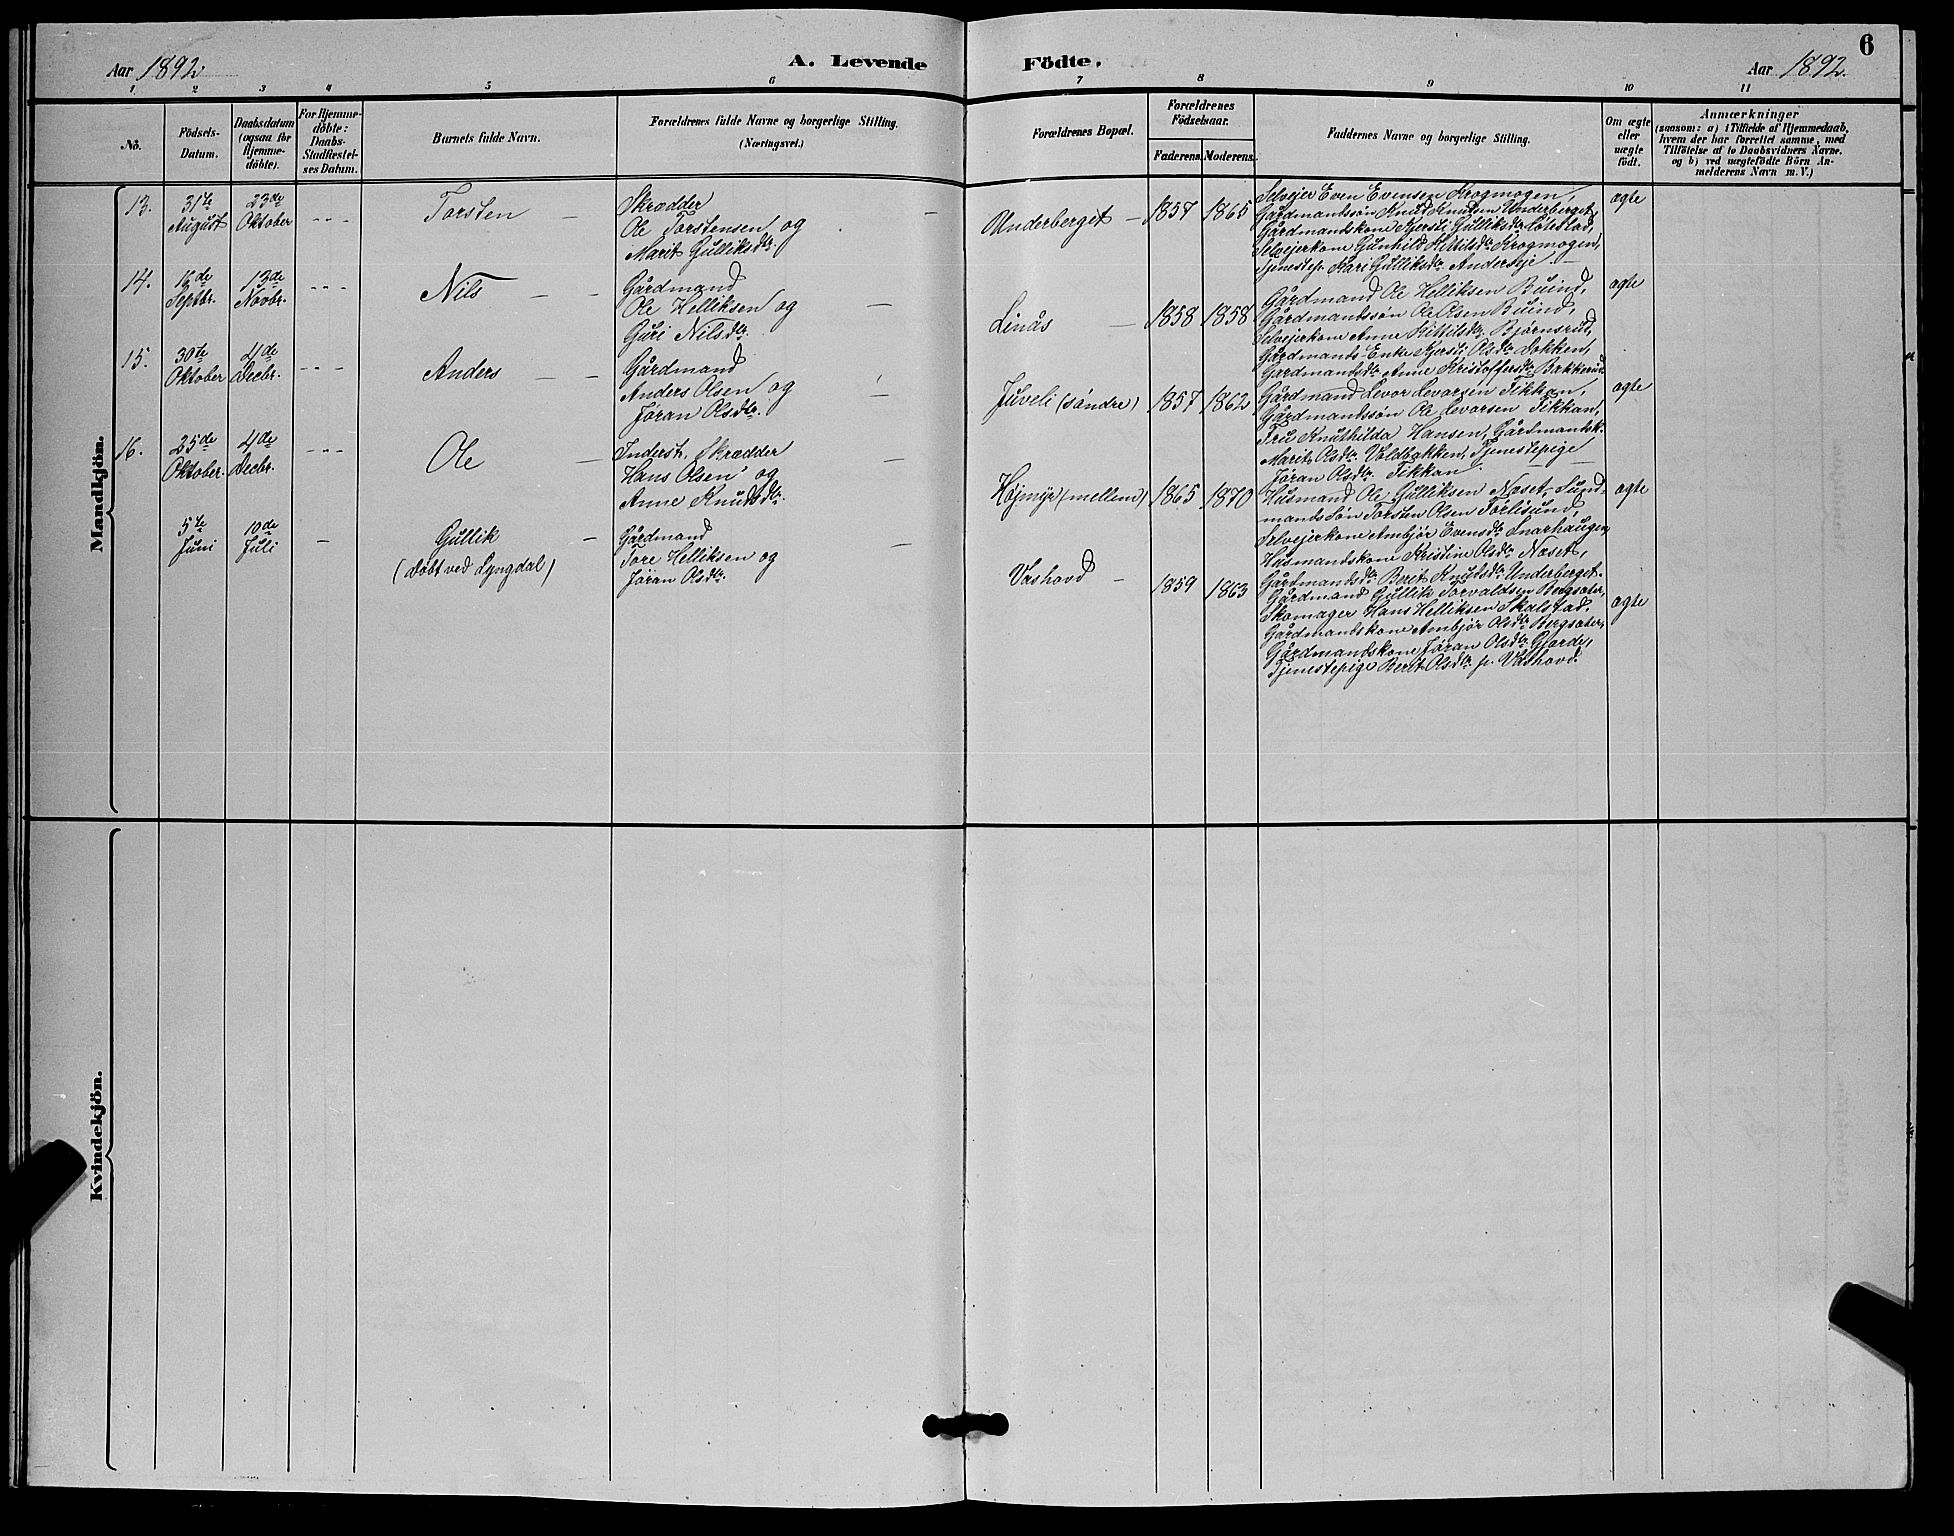 6
Aar 1892.
A. Levende Födte.
Aar 1892.
1 2 3 4 5 6 7 8 9 10 11
No.
Födsels-Datum.
Daabsdatum (ogsaa for Hjemme-döbte).
For Hjemme-döbte: Daabs-Stadfæstel-ses Datum.
Barnets fulde Navn.
Forældrenes fulde Navne og borgerlige Stilling.
(Næringsvei.)
Forældrenes Bopæl.
Forældrenes Födselsaar.
Faderens. Moderens.
Faddernes Navne og borgerlige Stilling.
Om ægte eller uægte födt.
Anmærkninger
(saasom: a) i Tilfælde af Hjemmedaab,
hvem der har forrettet samme, med
Tilföielse af to Daabsvidners Navne.
og b) ved uægtefödte Börn An-
melderens Navn m. V.)
Mandkjön.
13. 31te August 23de Oktober - - - Torsten -
Skrædder
Ole Torstensen og
Marit Gulliksdtr.
Underberget - 1857 1865
Selveier Even Evensen Krogmogen,
Gårdmandssön Knud Knudsen Underberget,
Gårdmandskone Kjersti Gulliksdtr.
Selveierkone Gunhild Kittilsdtr. Krogmogen,
Tjenestep. Kari Gulliksdtr. Anderseje. -
ægte
14. 16de Septbr. 13de Novbr. - - - Nils - -
Gårdmand
Ole Helliksen og
Guri Nilsdtr.
Linås - 1858 1858
Gårdmand Ole Helliksen Buind,
Gårdmandssön Ole Olsen Buind,
Selveierkone Anne Kittilsdtr. Björnsrud,
Gårdmands-Enke Kjersti Olsdtr. Dokken,
Gårdmandsdtr. Anne Kristoffersdtr. Bakkerud
ægte
15. 30te Oktober 4de Decbr. - - - Anders - -
Gårdmand
Anders Olsen og
Jöran Olsdtr.
Juveli (söndre) 1857 1862
Gårdmand Levor Levorsen Tikkan,
Gårdmandssön Ole Levorsen Tikkan,
Fru Knuthilda Hansen, Gårdmandsk.
Marit Olsdtr. Voldbakken, Tjenestepige
Jöran Olsdtr. Tikkan -
ægte
16. 25de Oktober. 4de Decbr. - - - Ole -
Inderst, Skrædder
Hans Olsen og
Anne Knudsdtr.
Højmyr (mellem) 1865 1870
Husmand Ole Gulliksen Næset,
mandssön Torsten Olsen
Selveierkone Ambjör Evensdtr.
Husmandskone Kristine Olsdtr. Næset,
Gårdmandsdtr. Berit Knutsdtr. Underberget.
ægte
5te Juni 10de Juli - Gullik -
(döbt ved Lyngdal)
Gårdmand
Tore Helliksen og
Jöran Olsdtr.
Vashovd - 1859 1863
Gårdmand Gullik Torvaldsen Bergsæter,
Skomager Hans Helliksen Skalstad.
Gårdmandskone Ambjör Olsdtr. Bergsæter,
Gårdmandskone Jöran Olsdtr. Gjærde,
Tjenestepige Berit Olsdtr. p. Vashovd.
ægte
Kvindekjön.